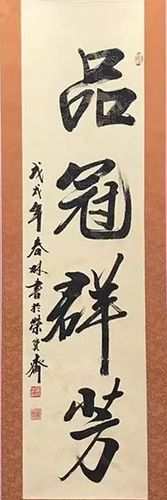 品冠群芳
戊戌年春林書於榮寶齋